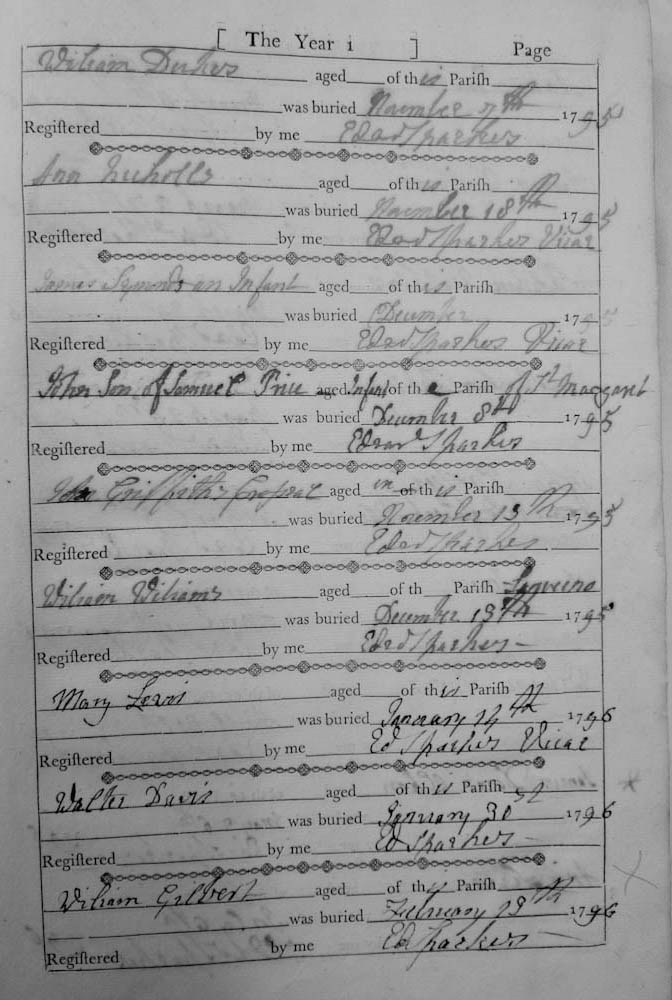 [ The Year 1 ] Page
William aged of this Parish
was buried November 7th 1795
Registered by me Edwd Sparkes
Ann Nicholls aged of this Parish
was buried November 18th 1795
Registered by me Edwd Sparkes Vicar
James Symonds an Infant aged of this Parish
was buried December 1795
Registered by me Edwd Sparkes Vicar
John Son of Samuel Price aged Infant of the Parish of St Margaret
was buried December 8th 1795
Registered by me Edward Sparkes
John Griffiths aged in of this Parish
was buried November 13th 1795
Registered by me Edwd Sparkes
William Williams aged of th Parish
was buried December 13th 1795
Registered by me Edwd Sparkes
Mary Lewis aged of this Parish
was buried January 14th 1796
Registered by me Ed Sparkes Vicar
Walter Davis aged of this Parish
was buried January 31st 1796
Registered by me Ed Sparkes
William Gilbert aged of this Parish
was buried February 13th 1796
Registered by me Ed Sparkes